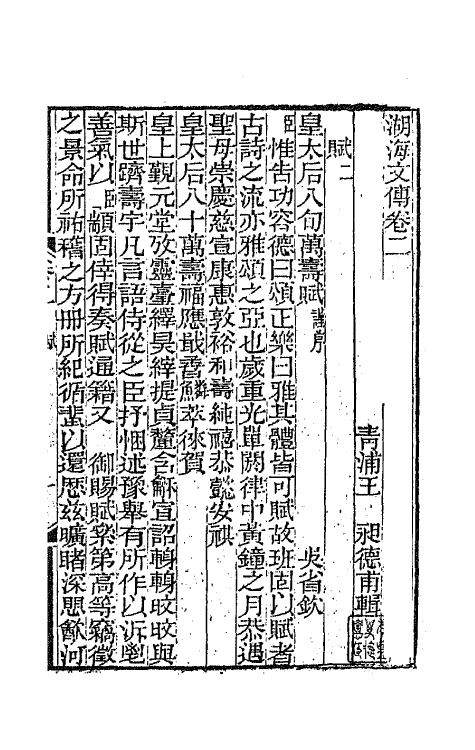 湖海文傳卷二
青浦王 昶德甫輯
賦二
皇太后八旬萬壽賦 謹序 吳省欽
臣惟告功容德曰頌正樂曰雅其體皆可賦故班固以賦者
古詩之流亦雅頌之亞也歲重光單閼律中黃鐘之月恭遇
聖母崇慶慈宣康惠敦裕和壽純禧恭懿安祺
皇太后八十萬壽福應戢孴鱗萃倈賀
皇上觀元堂攷靈臺繹昊縡提貞釐含龢宣詔
斯世躋壽宇凡言語侍從之臣抒悃述豫舉有所作以泝鬯
善氣以臣顓固倖得奏賦通籍又 御賜賦褧第高等竊徵
之景命所祐稽之方冊所紀循蜚以還歷茲曠睹深思猷河